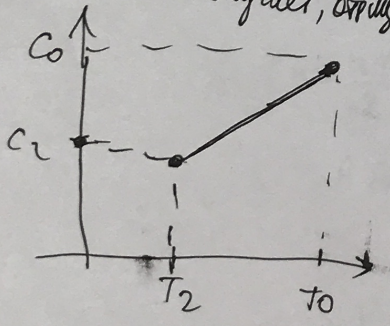 C₀
C₂
T₂
T0